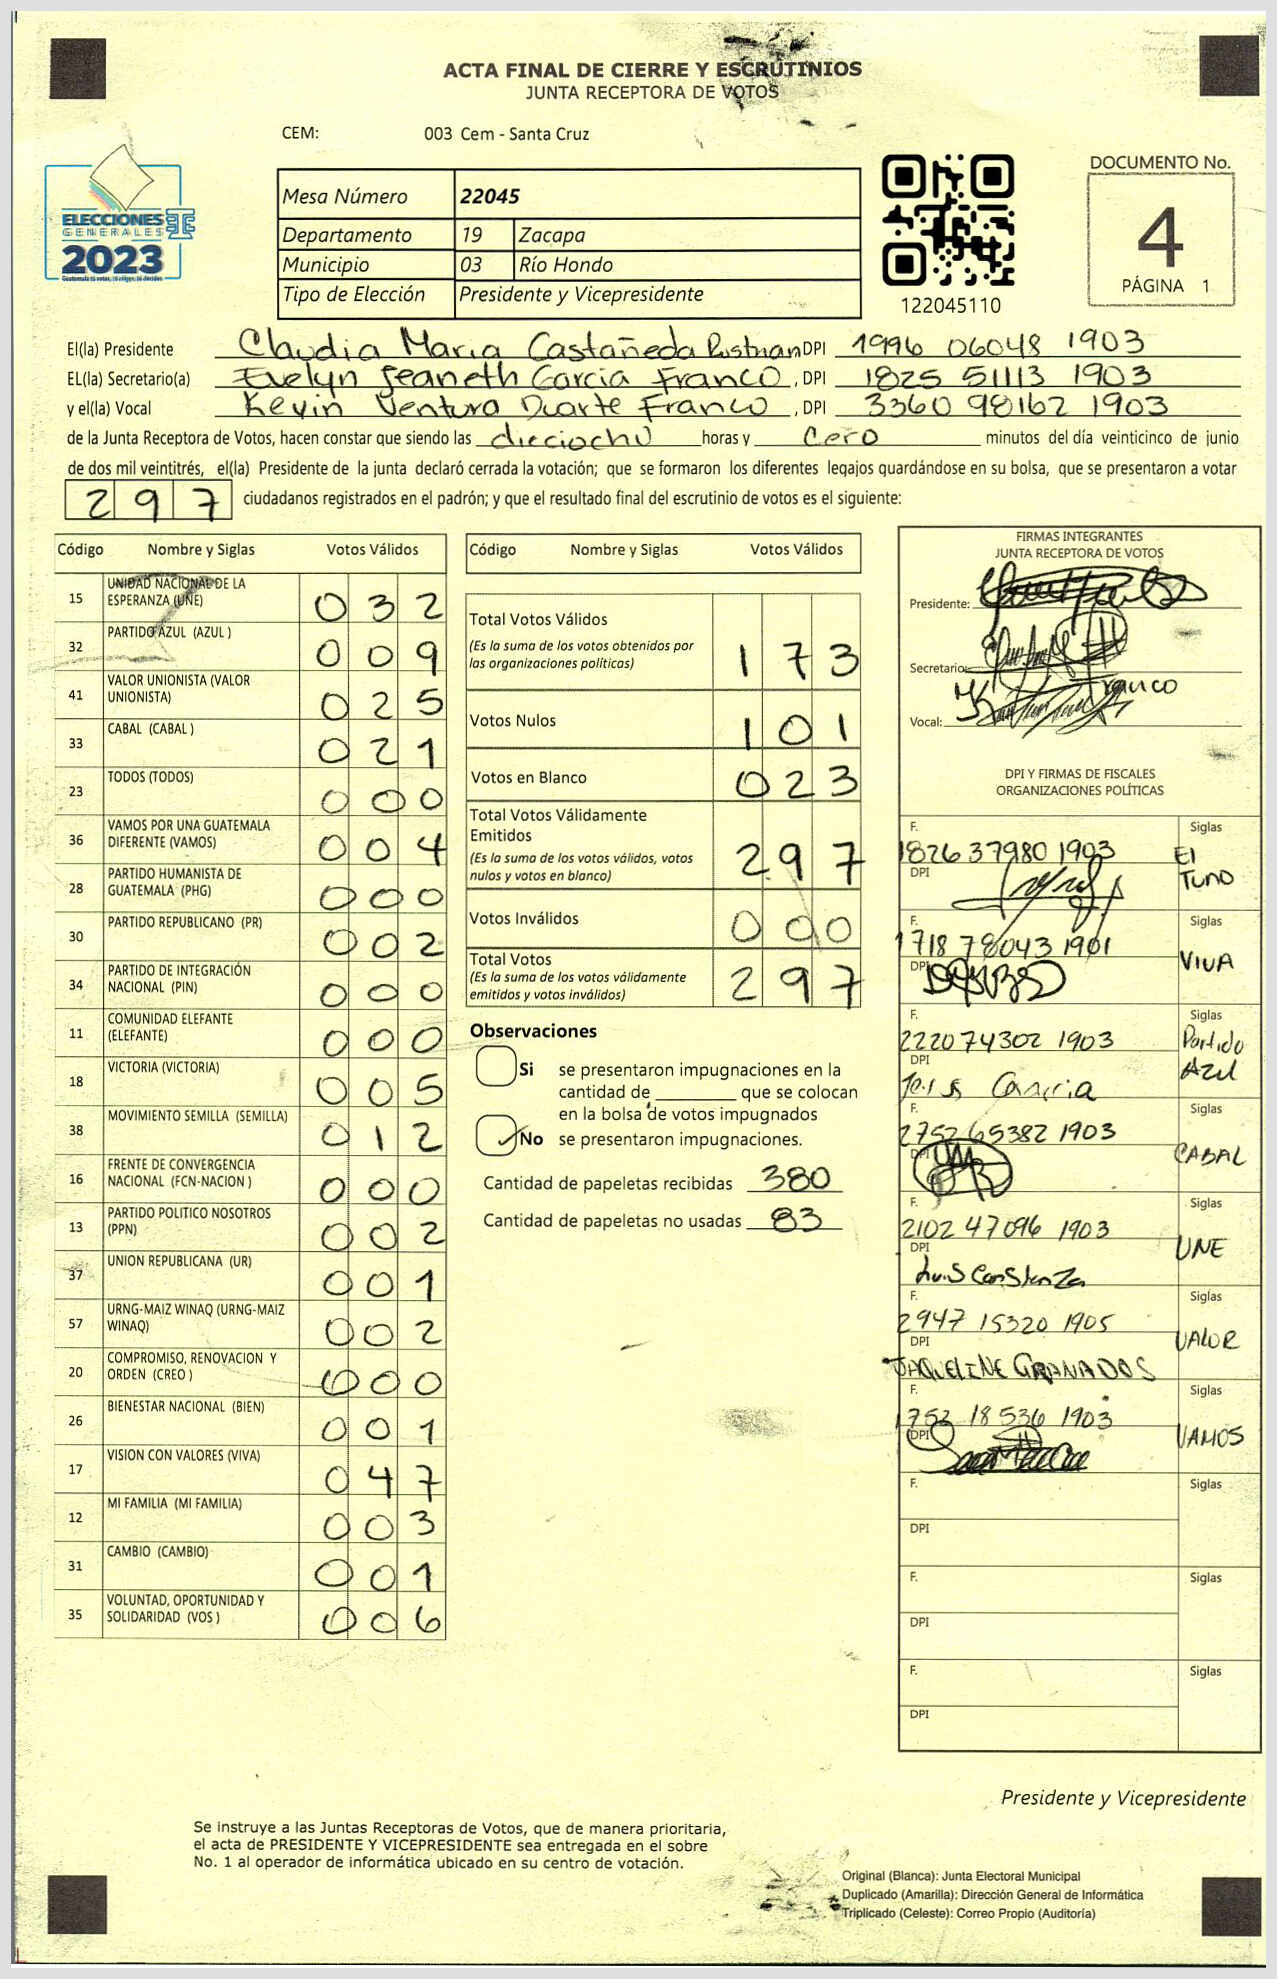 ACTA FINAL DE CIERRE Y ESCRUTINIOS
JUNTA RECEPTORA DE VOTOS
CEM: 003 Cem - Santa Cruz
ELECCIONES
GENERALES
2023
Mesa Número 22045
Departamento 19 Zacapa
Municipio 03 Río Hondo
Tipo de Elección Presidente y Vicepresidente
122045110
DOCUMENTO No.
4
PÁGINA 1
El(la) Presidente Claudia Maria Castañeda DPI 1996 06048 1903
EL(la) Secretario(a) Evelyn Jeaneth Garcia Franco, DPI 1825 51113 1903
y el(la) Vocal Kevin Ventura Duarte Franco, DPI 3360 98162 1903
de la Junta Receptora de Votos, hacen constar que siendo las dieciocho horas y cero minutos del día veinticinco de junio
de dos mil veintitrés, el(la) Presidente de la junta declaró cerrada la votación; que se formaron los diferentes legajos quardándose en su bolsa, que se presentaron a votar
297 ciudadanos registrados en el padrón; y que el resultado final del escrutinio de votos es el siguiente:
Código Nombre y Siglas Votos Válidos
15 UNIDAD NACIONAL DE LA ESPERANZA (UNE) 032
32 PARTIDO AZUL (AZUL ) 009
41 VALOR UNIONISTA (VALOR UNIONISTA) 025
33 CABAL (CABAL ) 021
23 TODOS (TODOS) 000
36 VAMOS POR UNA GUATEMALA DIFERENTE (VAMOS) 004
28 PARTIDO HUMANISTA DE GUATEMALA (PHG) 000
30 PARTIDO REPUBLICANO (PR) 002
34 PARTIDO DE INTEGRACIÓN NACIONAL (PIN) 000
11 COMUNIDAD ELEFANTE (ELEFANTE) 000
18 VICTORIA (VICTORIA) 005
38 MOVIMIENTO SEMILLA (SEMILLA) 012
16 FRENTE DE CONVERGENCIA NACIONAL (FCN-NACION ) 000
13 PARTIDO POLITICO NOSOTROS (PPN) 002
37 UNION REPUBLICANA (UR) 001
57 URNG-MAIZ WINAQ (URNG-MAIZ WINAQ) 002
20 COMPROMISO, RENOVACION Y ORDEN (CREO ) 000
26 BIENESTAR NACIONAL (BIEN) 001
17 VISION CON VALORES (VIVA) 047
12 MI FAMILIA (MI FAMILIA) 003
31 CAMBIO (CAMBIO) 001
35 VOLUNTAD, OPORTUNIDAD Y SOLIDARIDAD (VOS ) 006
Código Nombre y Siglas Votos Válidos
Total Votos Válidos
(Es la suma de los votos obtenidos por las organizaciones políticas) 173
Votos Nulos 101
Votos en Blanco 023
Total Votos Válidamente Emitidos
(Es la suma de los votos válidos, votos nulos y votos en blanco) 297
Votos Inválidos 000
Total Votos
(Es la suma de los votos válidamente emitidos y votos inválidos) 297
Observaciones
Si se presentaron impugnaciones en la
cantidad de ________ que se colocan
en la bolsa de votos impugnados
No se presentaron impugnaciones.
Cantidad de papeletas recibidas 380
Cantidad de papeletas no usadas 83
FIRMAS INTEGRANTES
JUNTA RECEPTORA DE VOTOS
Presidente:
Secretario:
Vocal: Franco
DPI Y FIRMAS DE FISCALES
ORGANIZACIONES POLÍTICAS
F. Siglas
1826 37980 1903 El
DPI Tuno
F. Siglas
1718 78043 1901 VIVA
DPI
F. Siglas
2220 74302 1903 Partido
DPI Azul
F. Siglas
2752 65382 1903 CABAL
DPI
F. Siglas
2102 47096 1903 UNE
DPI
Luis Constanza
F. Siglas
2947 15320 1905 VALOR
DPI
JAQUELINE GRANADOS
F. Siglas
1752 18 536 1903 VAMOS
DPI
F. Siglas
DPI
F. Siglas
DPI
F. Siglas
DPI
Presidente y Vicepresidente
Se instruye a las Juntas Receptoras de Votos, que de manera prioritaria,
el acta de PRESIDENTE Y VICEPRESIDENTE sea entregada en el sobre
No. 1 al operador de informática ubicado en su centro de votación.
Original (Blanca): Junta Electoral Municipal
Duplicado (Amarilla): Dirección General de Informática
Triplicado (Celeste): Correo Propio (Auditoría)